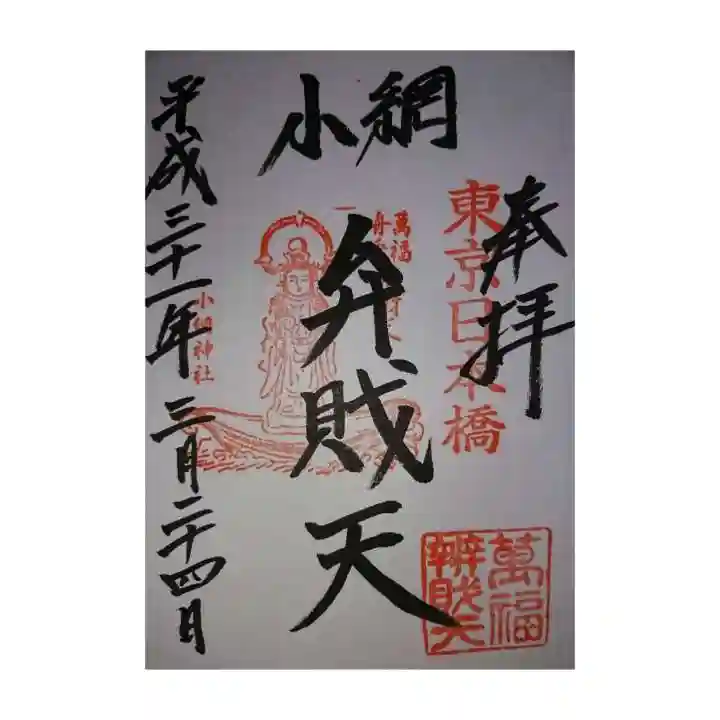 奉拝
東京日本橋
小網
弁財天
萬福
小網神社
平成三十一年三月二十四日
萬福
辨財天